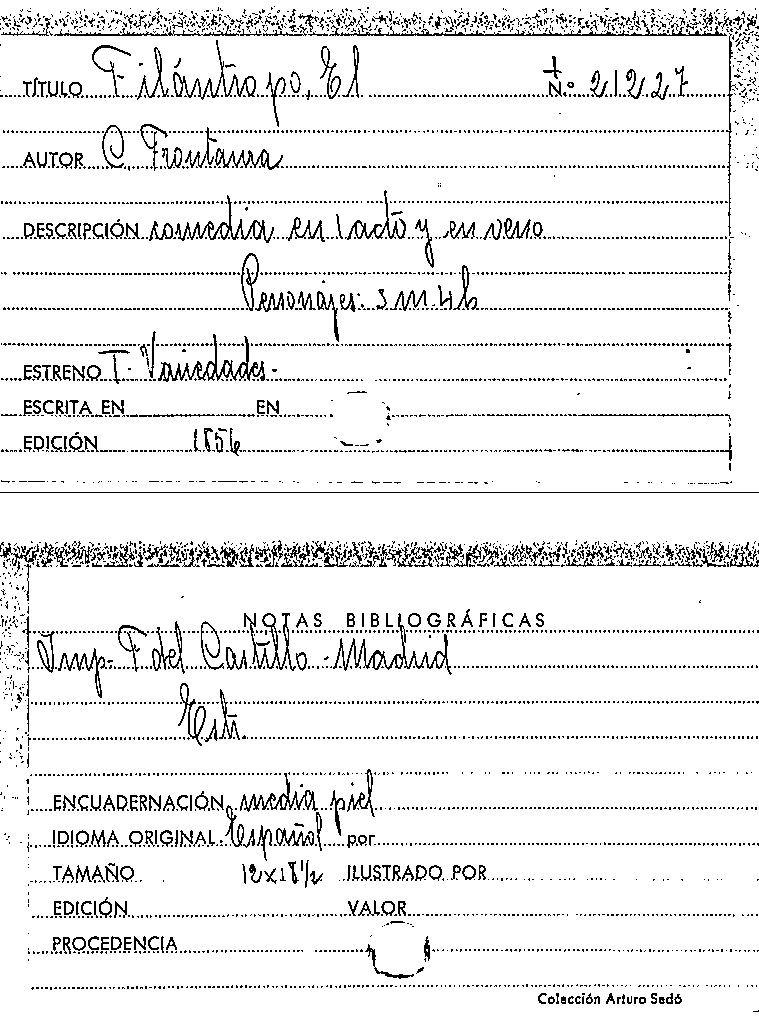 TÍTULO Filántropo, El N.º 21227
AUTOR C. Frontaura
DESCRIPCIÓN comedia en 1 acto y en verso
Personajes: 3 m. 4 h
ESTRENO T. Variedades.
ESCRITA EN EN
EDICIÓN 1856
NOTAS BIBLIOGRÁFICAS
Imp. F del Castillo - Madrid
ENCUADERNACIÓN media piel
IDIOMA ORIGINAL Español por
TAMAÑO 12 x 18 1/2 ILUSTRADO POR
EDICIÓN VALOR
PROCEDENCIA
Colección Arturo Sedó